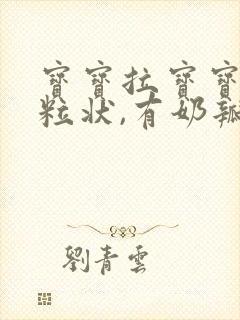 寶寶拉寶寶
粒狀,有奶瓣
劉青雲